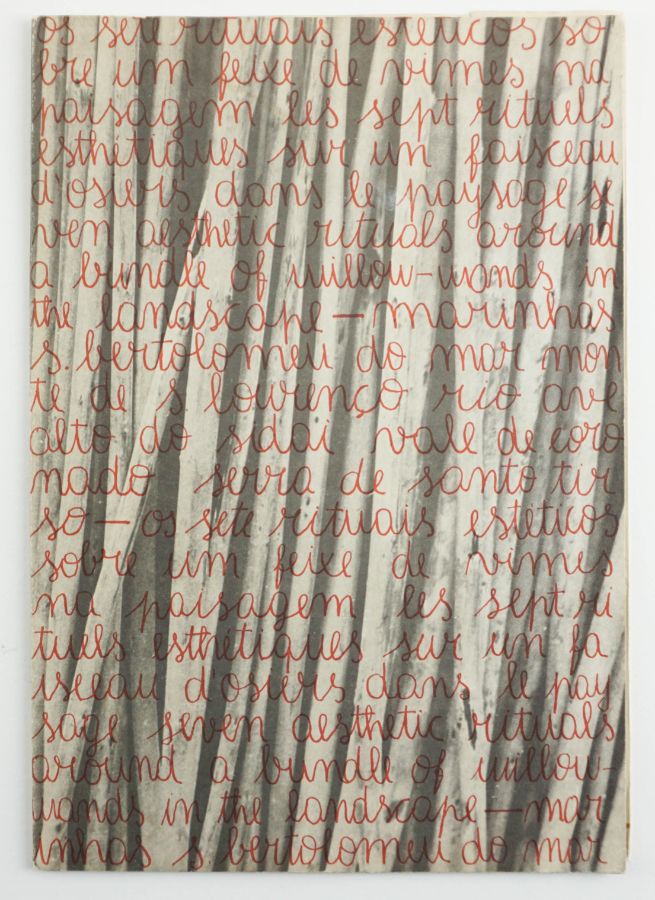 os sete rituais estéticos so
bre um feixe de vimes na
paisagem les sept rituels
esthétiques sur un faisceau
d'osiers dans le paysage se
ven aesthetic rituals around
a bundle of willow-wands in
the landscape — marinhas
s. bertolomeu do mar mon
te de s. lourenço rio ave
alto do sidai vale de coro
nado serra de santo tir
so — os sete rituais estéticos
sobre um feixe de vimes
na paisagem les sept ri
tuels esthétiques sur un fa
isceau d'osiers dans le pay
sage seven aesthetic rituals
around a bundle of willow-
wands in the landscape — mar
inhas s. bertolomeu do mar